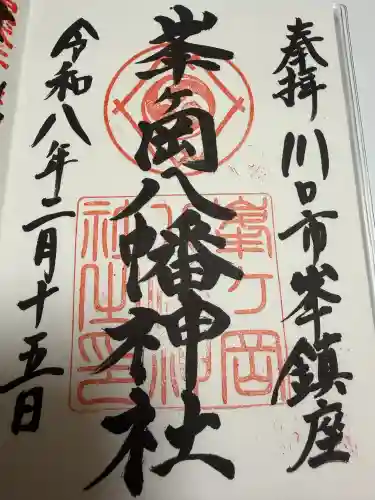 奉拝 川口市峯鎮座
峯ヶ岡八幡神社
令和八年二月十五日
峯ヶ岡八幡神社之印